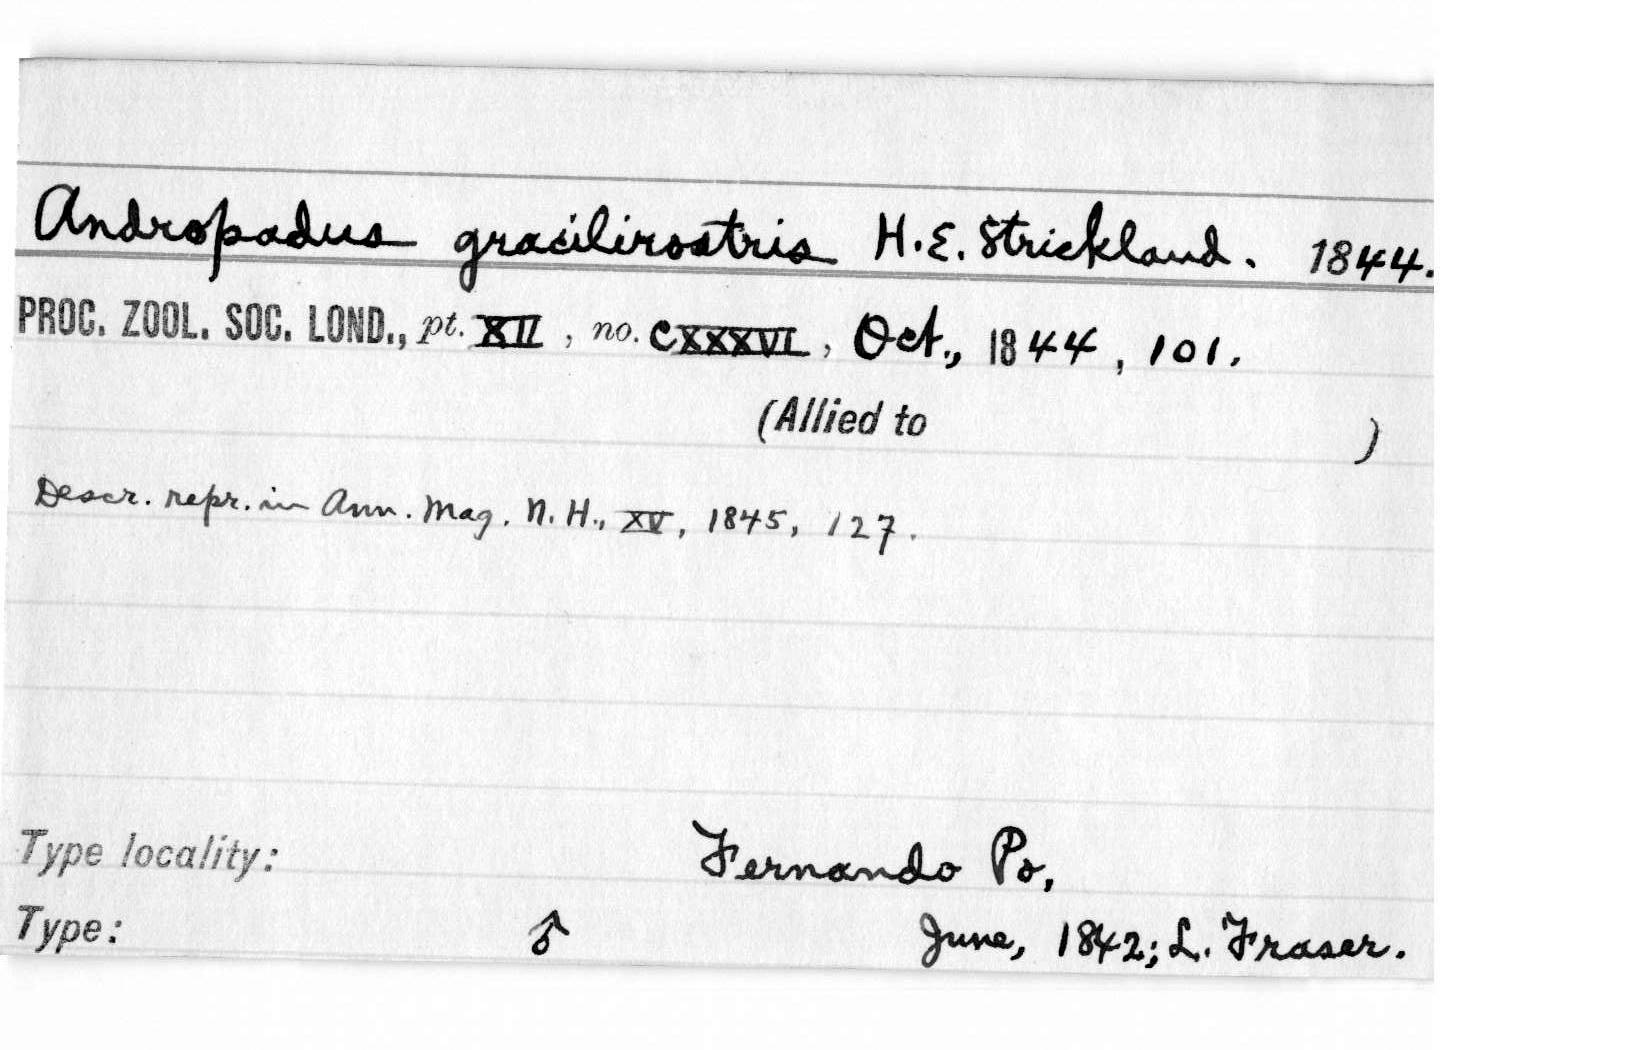 Andropadus gracilirostris H. E. Strickland. 1844.
PROC. ZOOL. SOC. LOND., pt. XII, no. CXXXVI, Oct., 1844, 101.
(Allied to )
Descr. repr. in Ann. Mag. N. H., XV, 1845, 127.
Type locality: Fernando Po,
Type: ♂ June, 1842; L. Fraser.